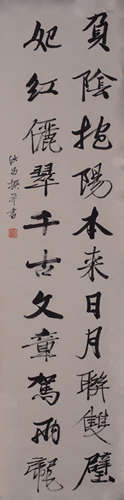 負陰抱陽本来日月聯雙璧
妃紅儷翠千古文章駕兩龍
書